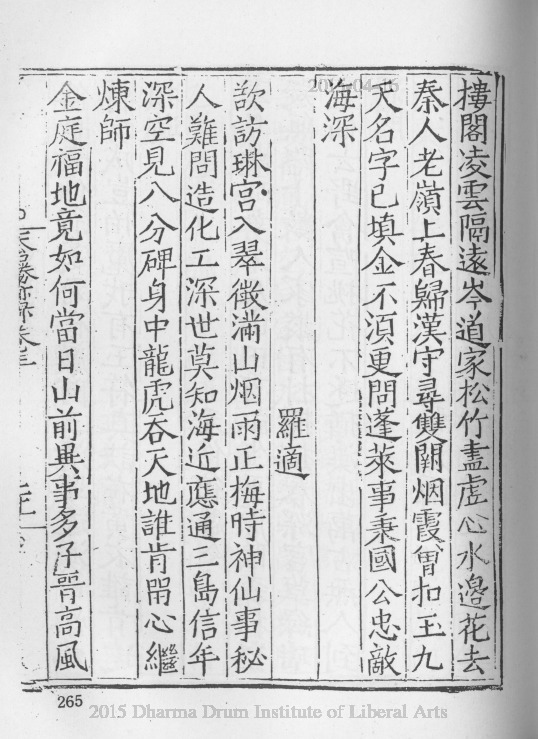 樓閣凌雲隔遠岑道家松竹盡虛心水邊花去
秦人老嶺上春歸漢守尋雙闕烟霞曾扣玉九
天名字已填金不須更問蓬萊事秉國公忠敵
海深
羅適
歆訪琳宮入翠微滿山烟雨正梅時神仙事秘
人難問造化工深世莫知海近應通三島信年
深空見八分碑身中龍虎吞天地誰肯用心繼
煉師
金庭福地竟如何當日山前異事多子晉高風
天台勝跡録卷三
265
2015 Dharma Drum Institute of Liberal Arts